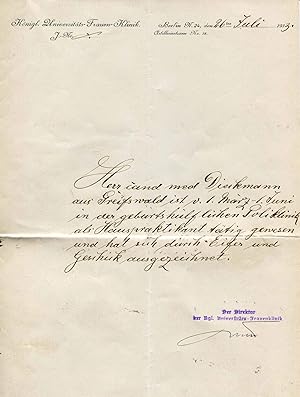 Königl. Universitäts-Frauen-Klinik.
J. No.
Berlin N. 24, den 26ten Juli
Artilleriestr. Nr. 18.
Herr cand med Dieckmann
aus Greifswald ist v. 1. März - 1. Juni
in der geburtshülflichen Poliklinik
als Hauspraktikant tätig gewesen
und hat sich durch Eifer und
Geschick ausgezeichnet.
Der Direktor
der Kgl. Universitäts-Frauenklinik